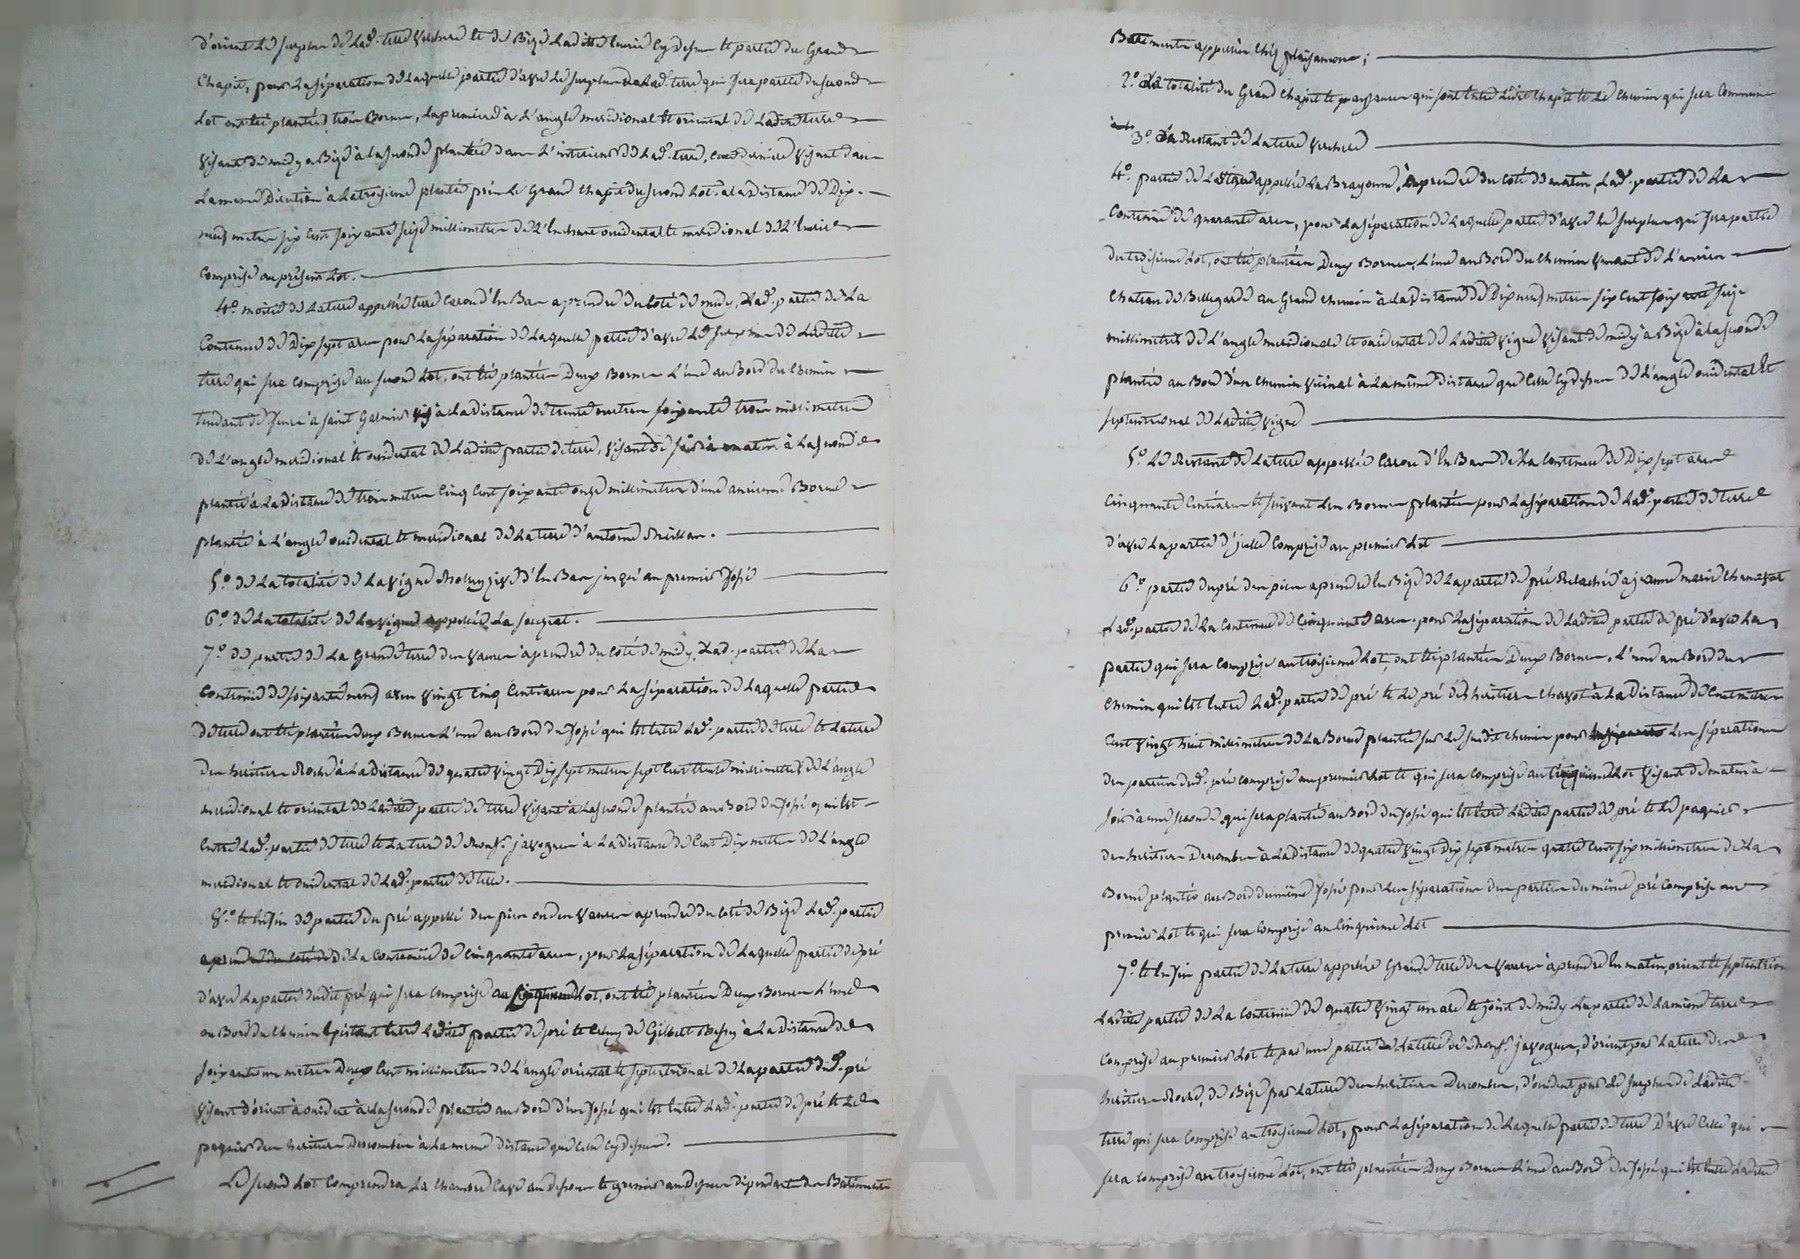 d'orient le surplus de lad. terre verchere et de Bize ladite Ecurie cy dessus et partie du Grand
Chapit, pour la séparation de laquelle partie d'avec le surplus de lad. terre qui sera partie du second
Lot ont été plantés trois Bornes, la premiere à l'angle méridional et oriental de ladite terre
Visant de midy a Bize à la seconde plantée dans l'interieur de lad. terre, cette derniere visant dans
la meme Direction à la troisieme plantée près le Grand Chapit du second Lot a la distance de Dix-
neuf metres six Cent soixante seize millimetres de l'Encoure occidental et meridional de l'Ecurie
Comprise au présent Lot.
4.° moitié de la terre appellée terre Caron d'En Bas a prendre du Coté de midy, Lad. partie de la
Contenue de Dix sept ares pour la séparation de laquelle partie d'avec le surplus de Ladite
terre qui sera Comprise au second Lot, ont été plantées Deux Bornes L'une au Bord du Chemin
tendant de feurs a Saint Galmier à la distance de trente metres soixante trois millimetres
de l'angle meridional et occidental de Ladite partie de terre, visant de soir à matin à la seconde
plantée à la Distance de trois metres Cinq Cent soixante onze millimetres d'une ancienne Borne
plantée à L'angle occidental et meridional de la terre d'antoine
5.° de la totalité de la Vigne d'En Bas jusqu'au premier fossé
6.° de la totalité de la vigne appellée la
7.° de partie de la Grande terre des Vaures à prendre du Coté de midy, Lad. partie de la
Contenüe de soixante neuf ares vingt Cinq Centiares pour la séparation de laquelle partie
de terre ont été plantées deux Bornes L'une au Bord du fossé qui est Entre Lad. partie de terre et la terre
des héritiers Roche à la Distance de quatre vingt Dix sept metres sept Cent trente millimetres de L'angle
meridional et oriental de Ladite partie de terre Visant à la seconde plantée au Bord du fossé qui est
Entre Lad. partie de terre et la terre de Mons.r javogues à la Distance de Cent Dix metres de L'angle
meridional et occidental de Lad. partie de terre.
8.° et Enfin de partie du pré appellé des pins ou des Vaures a prendre du Coté de Bize Lad. partie
de la Contenüe de Cinquante ares, pour la séparation de laquelle partie de pré
d'avec la partie dudit pré qui sera Comprise au Lot, ont été plantées Deux Bornes L'une
au Bord du Chemin Existant Entre Ladite partie de pré et Celuy de Gilbert à la Distance de
soixante un metres Deux Cent millimetres de L'angle oriental et septentrional de la partie dud. pré
Visant d'orient à occident à la seconde plantée au Bord d'un fossé qui est Entre Lad. partie de pré et le
paquier des heritiers à la meme distance que celle cy dessus.
Le second Lot Comprendra La Chambre Cave au dessous et grenier au dessus Dépendants des Batiments
Batiments appellés Chez
2.° La totalité du Grand Chapit et passages qui sont Entre Ledit Chapit et le Chemin qui sera Commun
3.° Le Restant de la terre Verchere
4.° partie de la vigne appellée la à prendre du Coté de matin, Lad. partie de la
Contenüe de quarante ares, pour la séparation de laquelle partie d'avec le surplus qui sera partie
du troisieme Lot, ont été plantées Deux Bornes, L'une au Bord du Chemin venant de L'ancien
Chateau de Bellegarde au Grand Chemin à la Distance de Dix neuf metres six Cent soixante seize
millimetres de L'angle meridional et occidental de Ladite vigne Visant de midy à Bize à la seconde
plantée au Bord d'un Chemin vicinal à la même distance que celle cy dessus de L'angle occidental et
septentrional de Ladite Vigne
5.° Le Restant de la terre appellée Caron d'En Bas de la Contenue de Dix sept ares
Cinquante Centiares Et suivant Les Bornes plantées pour la séparation de lad. partie de terre
d'avec la partie d'icelle Comprise au premier Lot
6.° partie du pré des pins a prendre En Bize de la partie de pré Relachée à jeanne marie
Lad. partie de la Contenue de Cinquante ares. pour la séparation de Ladite partie de pré d'avec la
partie qui sera Comprise au troisieme Lot ont été plantées Deux Bornes, L'une au Bord du
Chemin qui est Entre Lad. partie de pré et le pré des heritiers à la Distance de Cent metres
Cent vingt huit millimetres de la Borne plantée sur le susdit Chemin pour Les séparations
des parties dud. pré Comprise au premier Lot et qui sera Comprise au Cinquieme Lot Visant de matin à
soir à une seconde qui sera plantée au Bord du fossé qui est Entre Ladite partie de pré et le paquier
des heritiers à la Distance de quatre vingt Dix sept metres quatre Cent six millimetres de la
Borne plantée au Bord du même fossé pour les séparations des parties du même pré Comprise au
premier Lot et qui sera Comprise au Cinquieme Lot
7.° et Enfin partie de la terre appellée Grande terre des Vaures à prendre En matin, orient et septentrion
Ladite partie de la Contenüe de quatre vingt un are et joint de midy la partie de la même terre
Comprise au premier Lot et par une partie la terre de Mons.r javogues, d'orient par la terre des
héritiers Roche, de Bize par la terre des heritiers, d'occident par le surplus de Ladite
terre qui sera Comprise au troisieme Lot, pour la séparation de laquelle partie de terre D'avec Celle qui
sera Comprise au troisieme Lot, ont été plantées Deux Bornes L'une au Bord du fossé qui est Entre Ladite